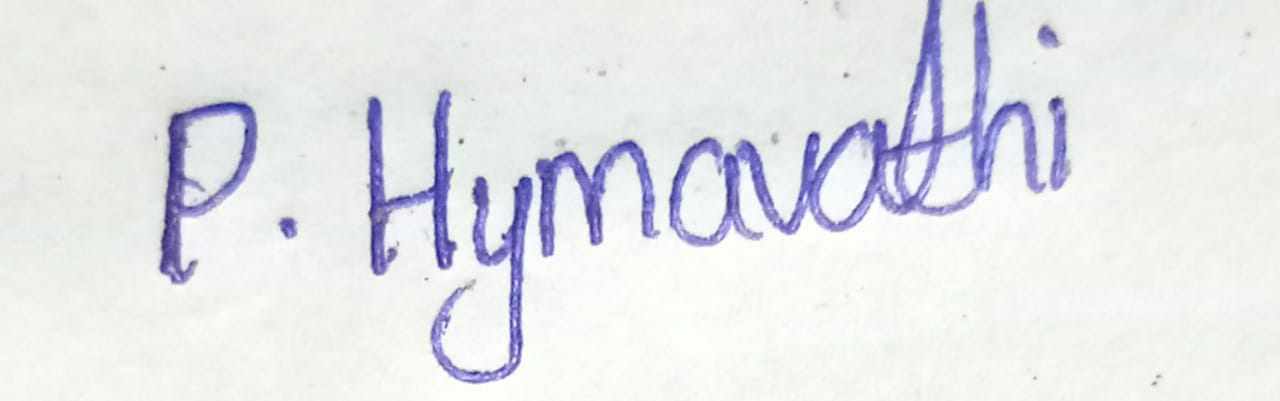 P. Hymavathi